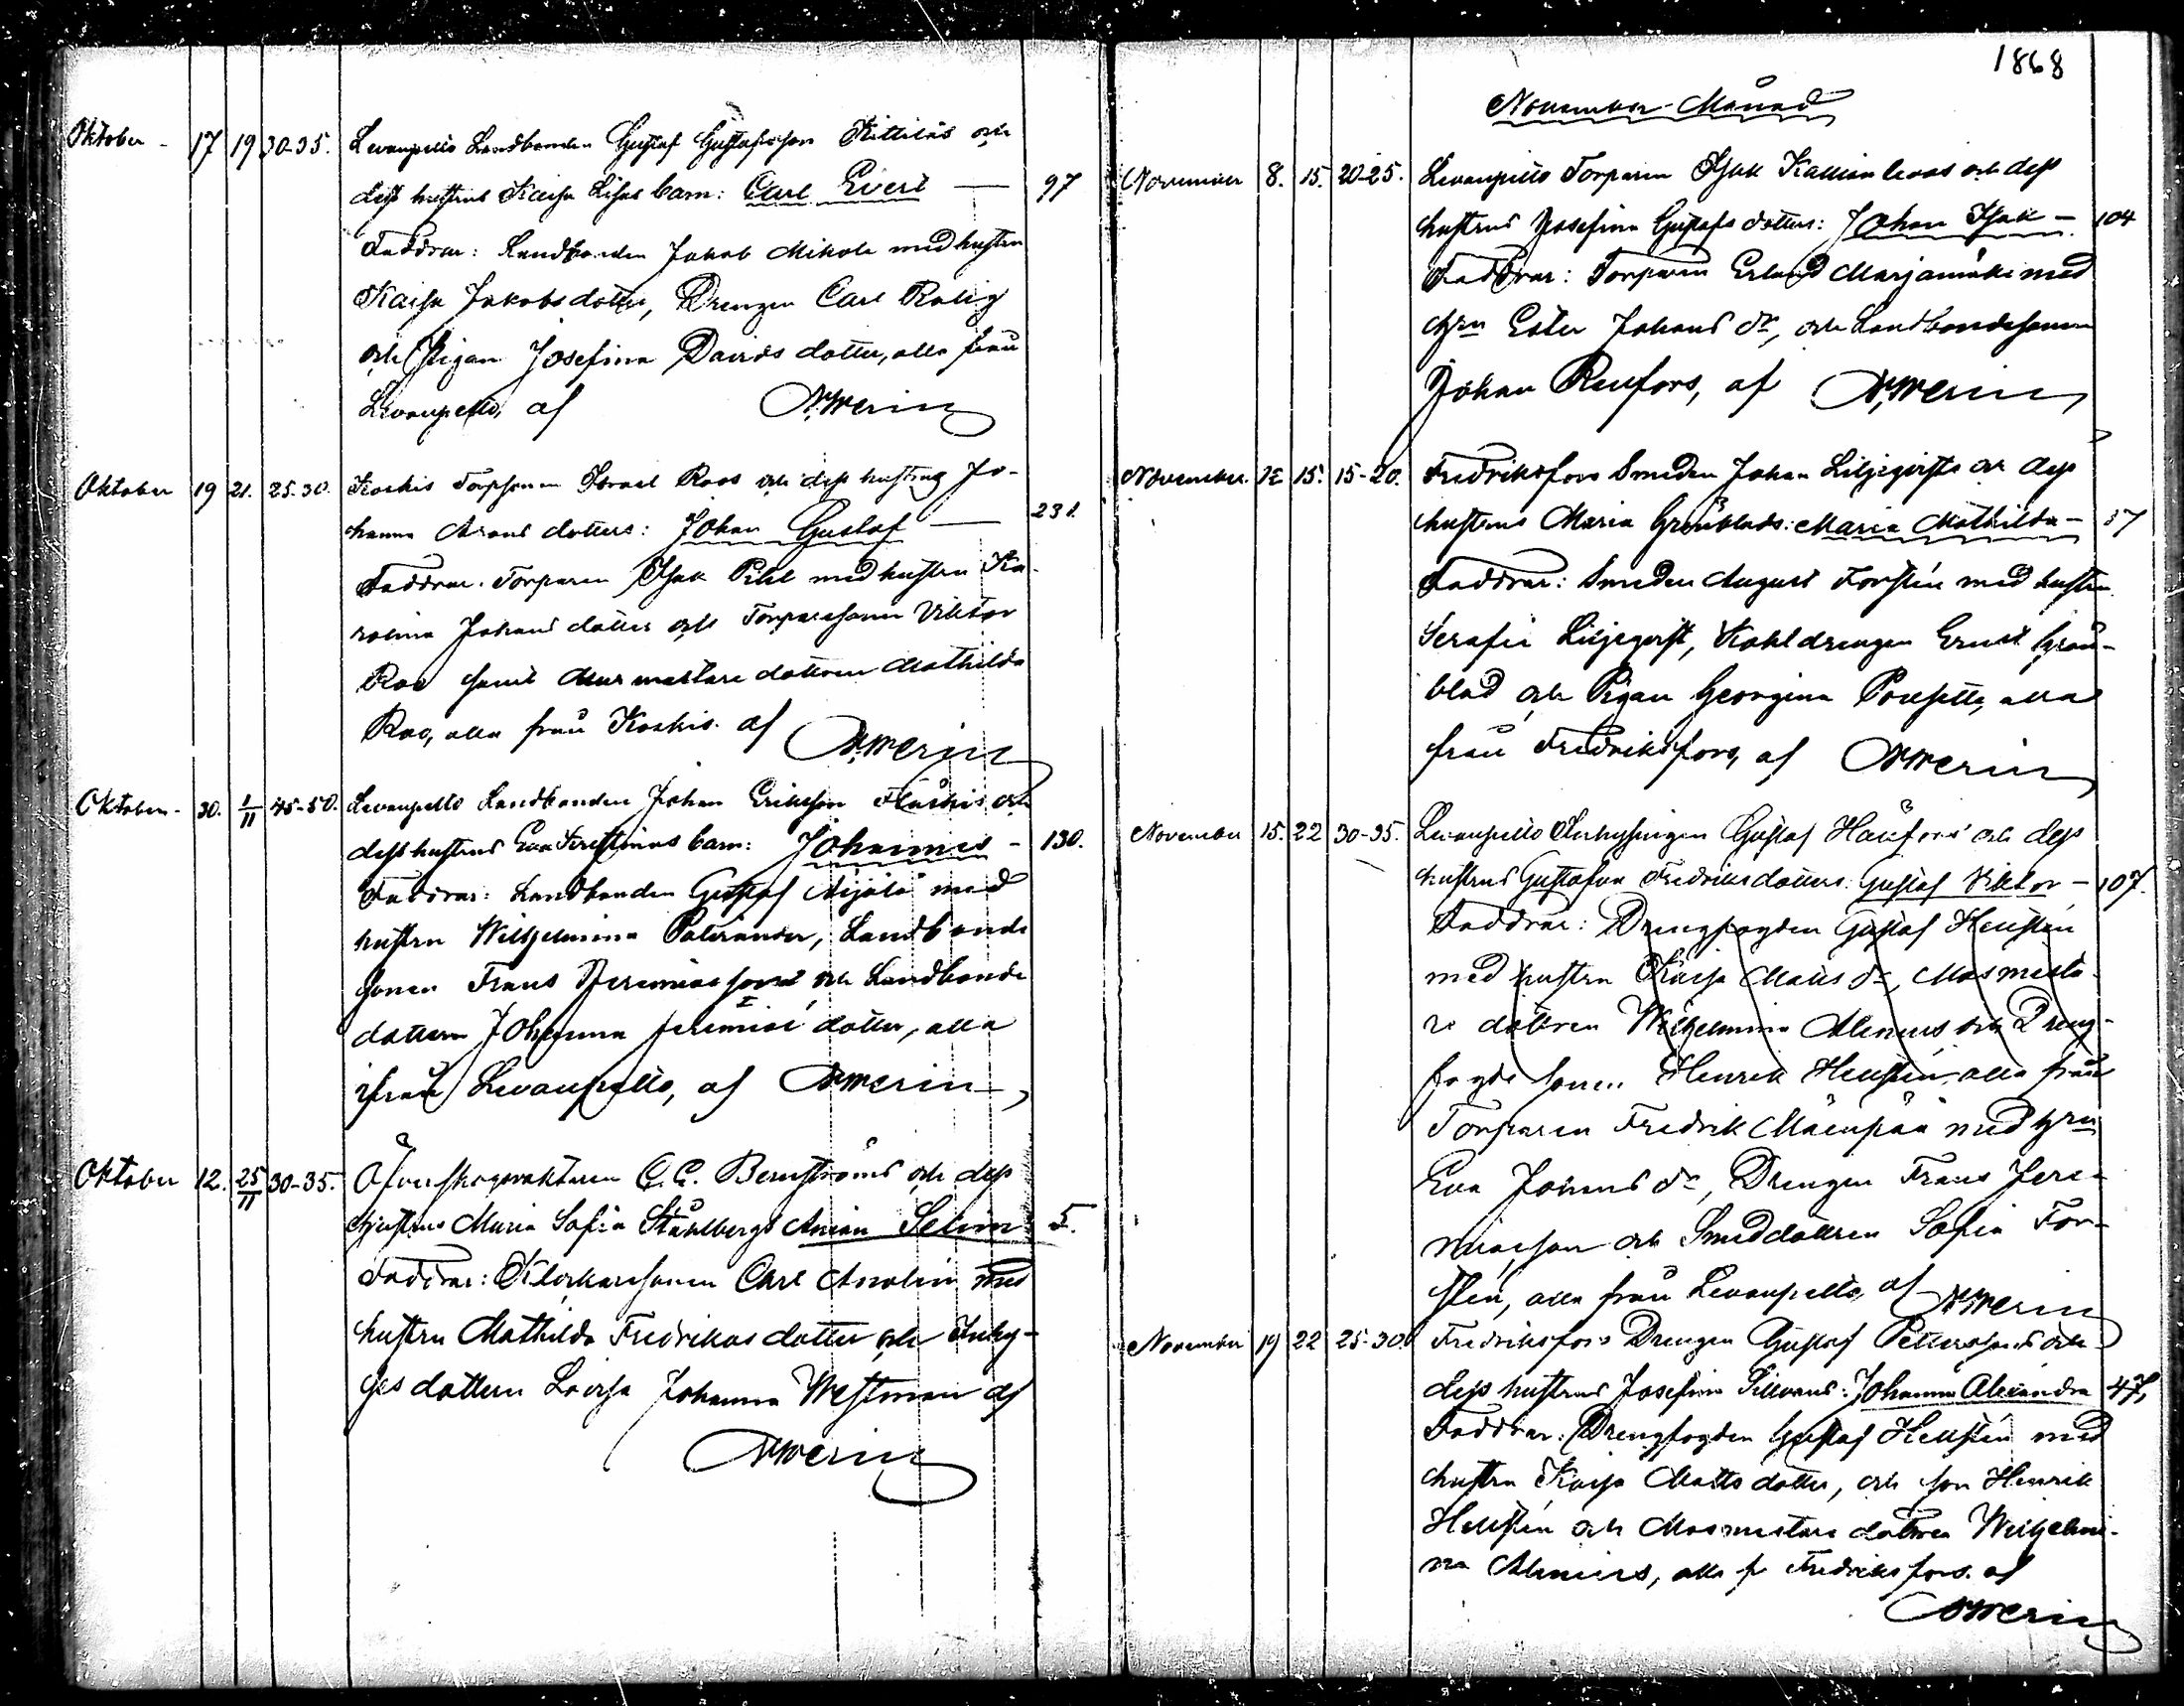 Oktober - 17 19 30-35. Levanpelto Landbonden Gustaf Gustafsson Kittiläs och
dess hustrus Kaisa Lisas barn: Carl Evert — 97
Faddrar: Landbonden Jakob Mikola med hustru
Kaisa Jakobsdotter, Drengen Carl Rolig
och Pigan Josefina Davidsdotter, alla från
Levanpelto, af
Oktober 19 21. 25-30. Koskis Torpsonen Israel Roos och dess hustrus Jo-
hanna Arons dotters: Johan Gustaf — 231.
Faddrar. Torparen Isak Pihl med hustru Ka-
rolina Johans dotter och Torparesonen Viktor
Roo samt Murmästare dottren Mathilda
Roo, alla från Koskis. af
Oktober - 30. 1/11 45-50. Levanpelto Landbonden Johan Eriksson Fläskis och
dess hustrus Eva Kristinas barn: Johannes - 130.
Faddrar: Landbonden Gustaf Äijälä med
hustru Wilhelmina Palerander, Landbonde
sonen Frans Jeremiasson och Landbonde
dottern Johanna Jeremiæ dotter, alla
ifrån Levanpelto, af
Oktober 12. 25/11 30-35. Öfverskogvaktaren C. C. Bernströms och dess
Hustrus Maria Sofia Ståhlbergs Anian Selim 5.
Faddrar: Klockaresonen Carl Anolin med
hustru Mathilda Fredrikas dotter och Inhy-
ses dottern Lovisa Johanna Westman af
1868
November Månad
November 8. 15. 20-25. Levanpelto Torparen Isak Kallionlevos och dess
hustrus Josefina Gustafs dotters: Johan Isak — 104
Faddrar: Torparen Erland Marjamäki med
Hru Ester Johans dr, och Landbondesonen
Johan Renfors, af
November 12 15. 15-20. Fredriksfors Smeden Johan Liljeqvists och dess
hustrus Maria Grönblads: Maria Mathilda — 37
Faddrar: Smeden August Forstén med hustru
Serafia Liljeqvist, Kohldrengen Ernst Grön-
blad och Pigan Georgina Pousette, alla
från Fredriksfors, af
November 15. 22 30-35. Levanpelto Inhysingen Gustaf Hanfors' och dess
hustrus Gustafva Fredriksdotters: Gustaf Viktor — 107.
Faddrar: Drengfogden Gustaf Hellstén
med hustru Kaisa Matts dr, Masmästa-
re dottren Wilhelmina Alenius och Dreng-
fogde sonen Henrik Hellstén, alla från
Torparen Fredrik Mäenpää med hru
Eva Johans dr, Drengen Frans Jere-
miasson och Smeddottren Sofia For-
stén, alla från Levanpelto, af
November 19 22 25-30. Fredriksfors Drengen Gustaf Petterssons och
dess hustrus Josefina Sillvans: Johanna Alexandra 47,
Faddrar: Drengfogden Gustaf Hellstén med
hustru Kaisa Matts dotter, och son Henrik
Hellstén och Masmästare dottren Wilhelmi-
na Alenius, alla fr Fredriksfors. af